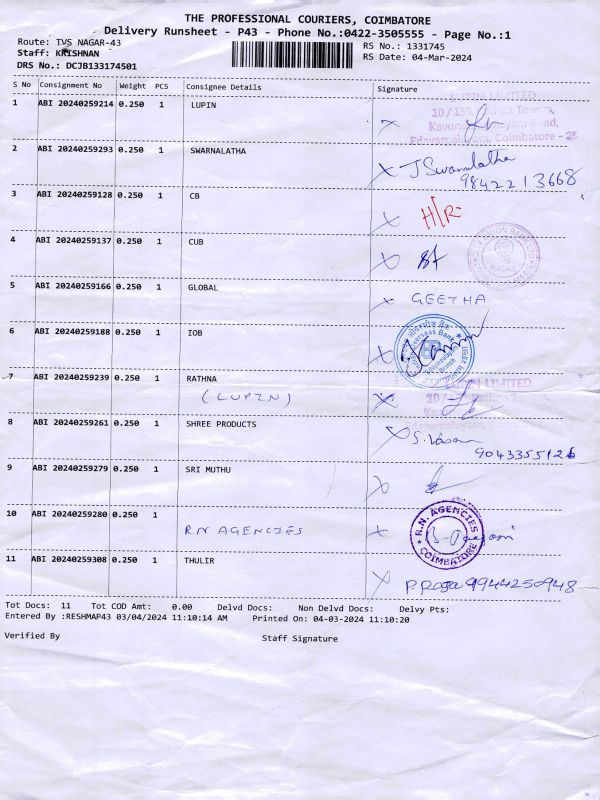 THE PROFESSIONAL COURIERS, COIMBATORE
Delivery Runsheet - P43 - Phone No.:0422-3505555 - Page No.:1
Route: TVS NAGAR-43
RS No.: 1331745
Staff: KRISHNAN
RS Date: 04-Mar-2024
DRS No.: DCJB133174501
S No Consignment No Weight PCS Consignee Details Signature
1 ABI 20240259214 0.250 1 LUPIN
LUPIN LIMITED
Coimbatore - 25
2 ABI 20240259293 0.250 1 SWARNALATHA J Swarnalatha
9842213668
3 ABI 20240259128 0.250 1 CB H/R
4 ABI 20240259137 0.250 1 CUB
5 ABI 20240259166 0.250 1 GLOBAL GEETHA
6 ABI 20240259188 0.250 1 IOB
7 ABI 20240259239 0.250 1 RATHNA
(LUPIN)
LUPIN LIMITED
8 ABI 20240259261 0.250 1 SHREE PRODUCTS S. Vasan
9043355126
9 ABI 20240259279 0.250 1 SRI MUTHU
10 ABI 20240259280 0.250 1
RN AGENCIES
R.N. AGENCIES
COIMBATORE
11 ABI 20240259308 0.250 1 THULIR
P. Raja 9944250948
Tot Docs: 11 Tot COD Amt: 0.00 Delvd Docs: Non Delvd Docs: Delvy Pts:
Entered By :RESHMAP43 03/04/2024 11:10:14 AM Printed On: 04-03-2024 11:10:20
Verified By Staff Signature